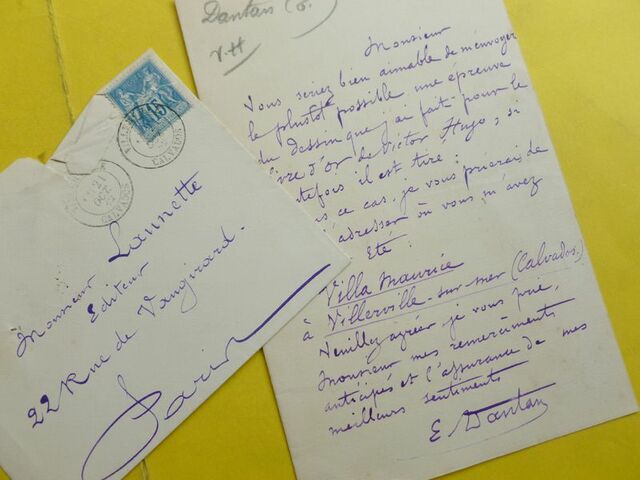 Dantan (E.)
V.H
Monsieur
Vous seriez bien aimable de m'envoyer
le plustôt possible une épreuve
du Dessin que j'ai fait pour le
ivre d'or de Victor Hugo, si
tefois il est tiré :
s ce cas, je vous prierais de
adresser où vous m'avez
Eté :
Villa Maurice
à Villerville-sur-mer (Calvados.)
Veuillez agréer je vous prie,
Monsieur mes remerciments
anticipés et l'assurance de mes
meilleurs sentiments
E Dantan
15
CALVADOS
CALVADOS
Monsieur Launette
Editeur
22 Rue de Vaugirard.
Paris